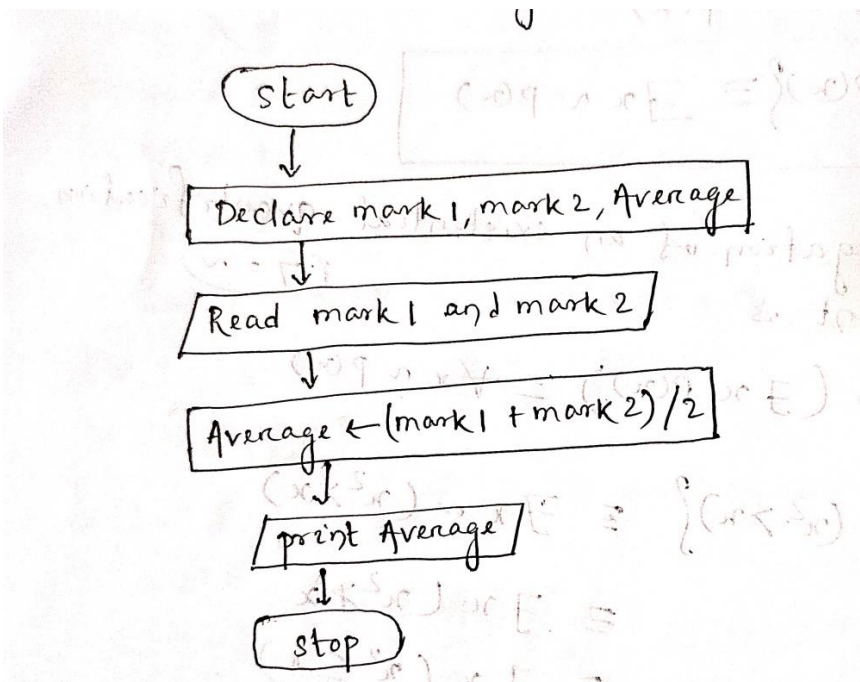 start
Declare mark 1, mark 2, Average
Read mark 1 and mark 2
Average ← (mark 1 + mark 2) / 2
print Average
stop